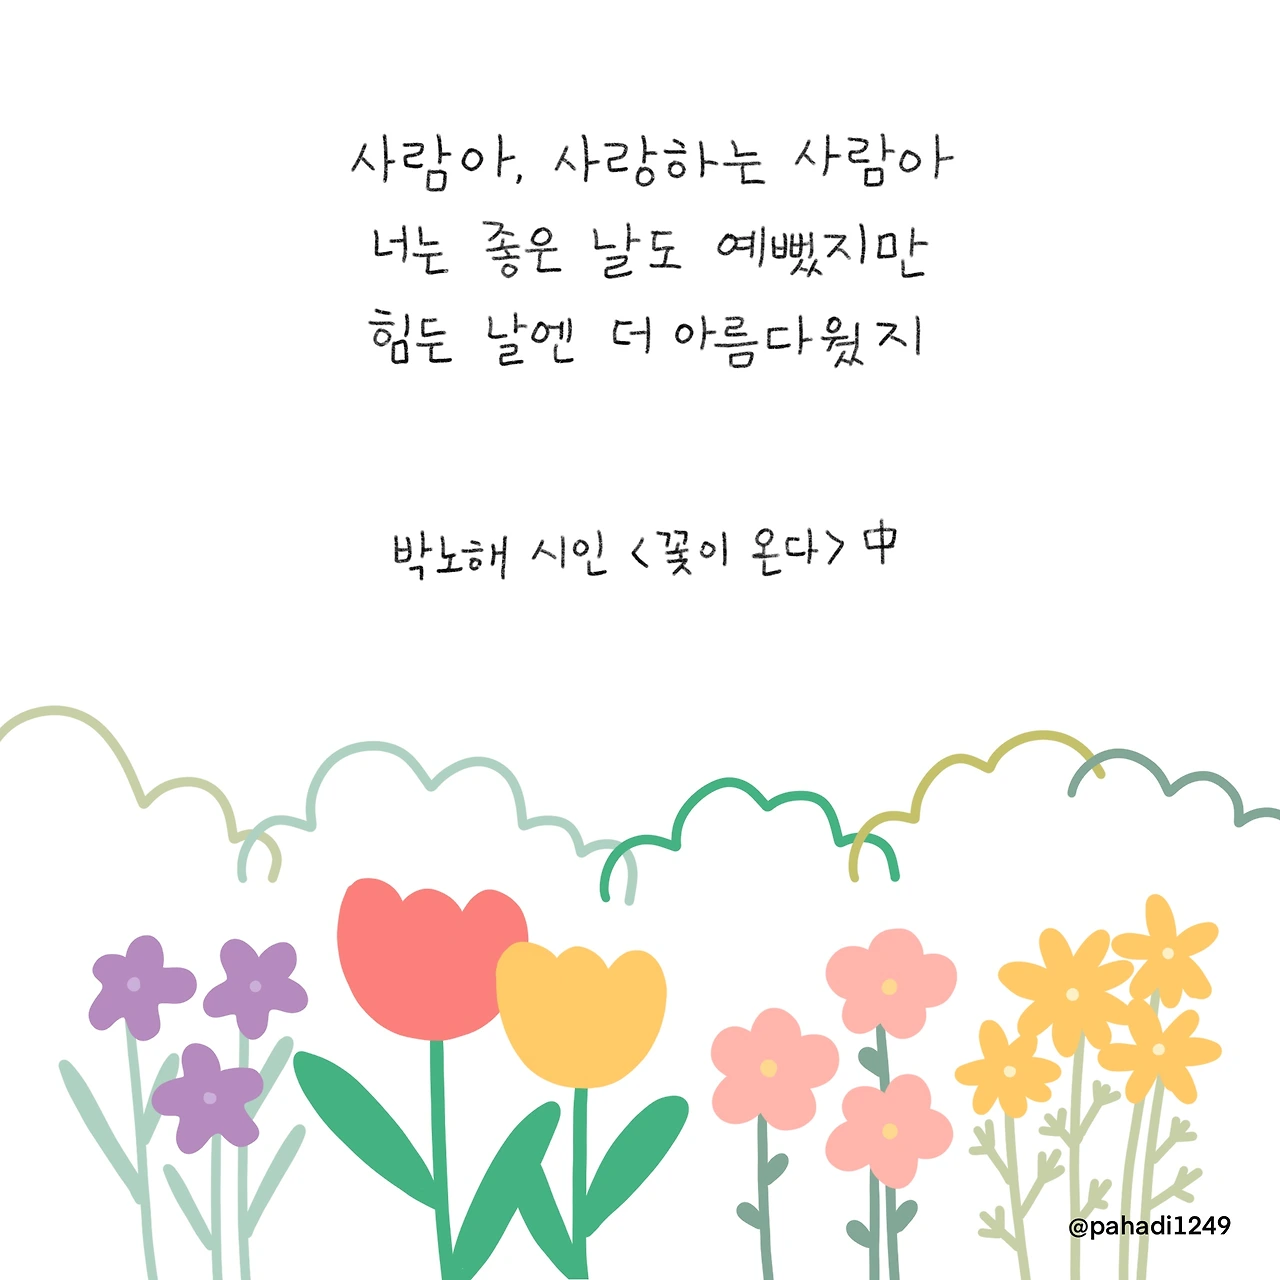 사람아, 사랑하는 사람아
너는 좋은 날도 예뻤지만
힘든 날엔 더 아름다웠지
박노해 시인 <꽃이 온다> 中
@pahadi1249